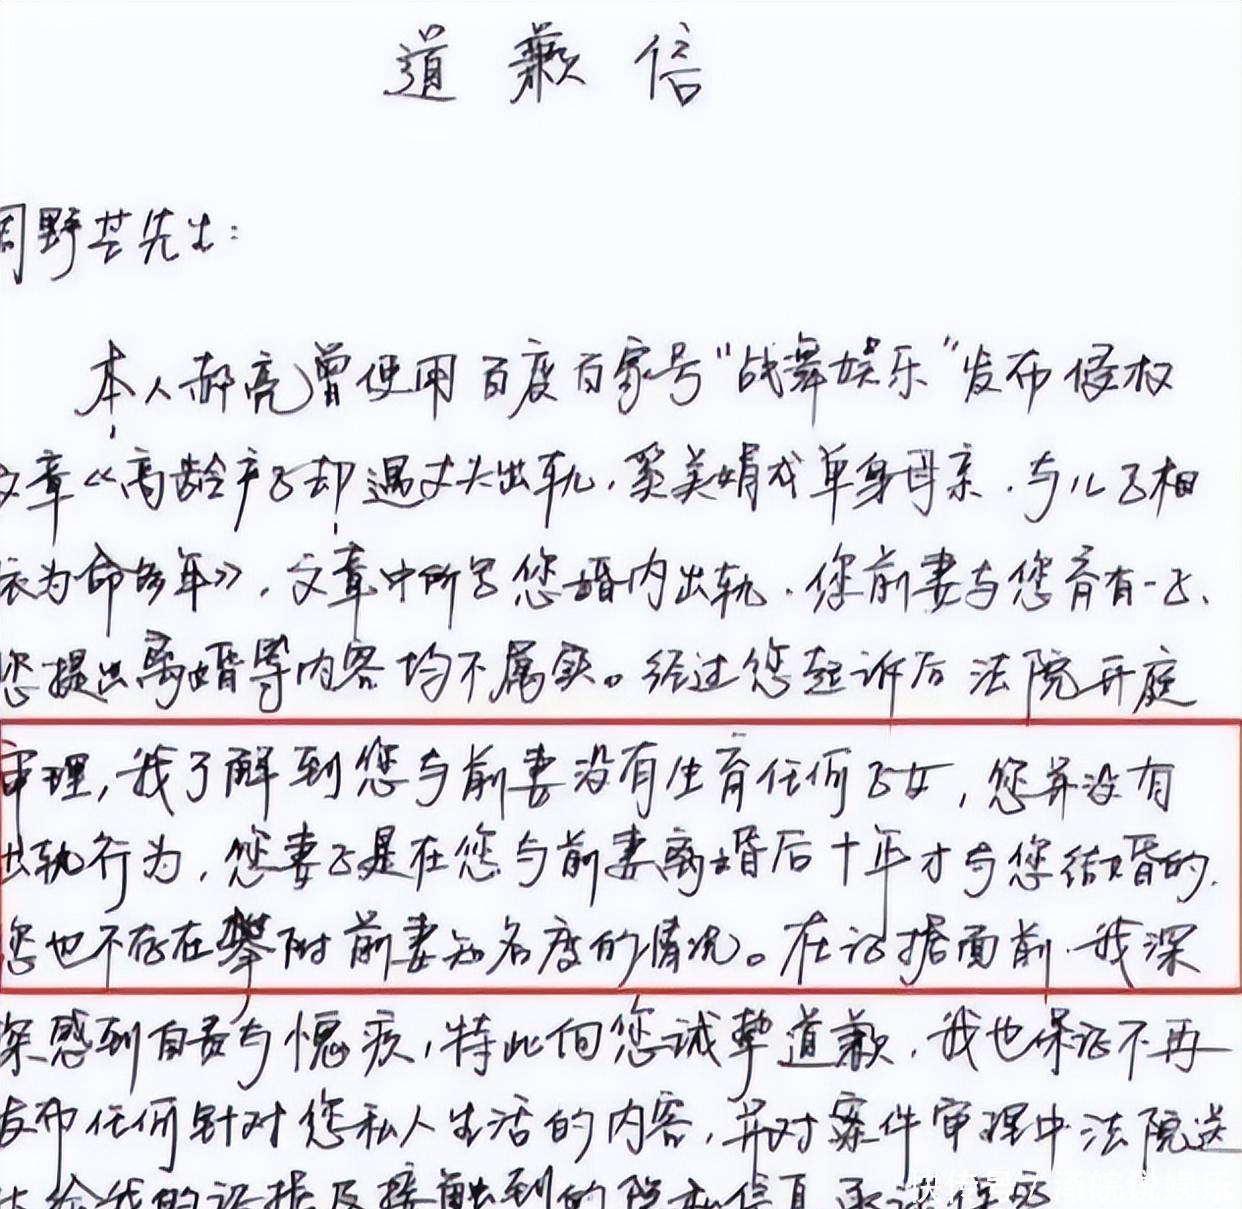 道歉信
周野芒先生：
本人郝亮曾使用百度百家号“战舞娱乐”发布侵权
文章《高龄产子却遇丈夫出轨，奚美娟成单身母亲，与儿子相
依为命多年》，文章中所写您婚内出轨，您前妻与您育有一子、
您提出离婚等内容均不属实。经过您起诉后法院开庭
审理，我了解到您与前妻没有生育任何子女，您并没有
出轨行为，您妻子是在您与前妻离婚后十年才与您结婚的，
您也不存在攀附前妻知名度的情况。在证据面前，我深
深感到自责与愧疚，特此向您诚挚道歉，我也保证不再
发布任何针对您私人生活的内容，并对案件审理中法院送
达给我的证据及接触到的隐私信息承诺保密
快传号/泽皖说娱乐